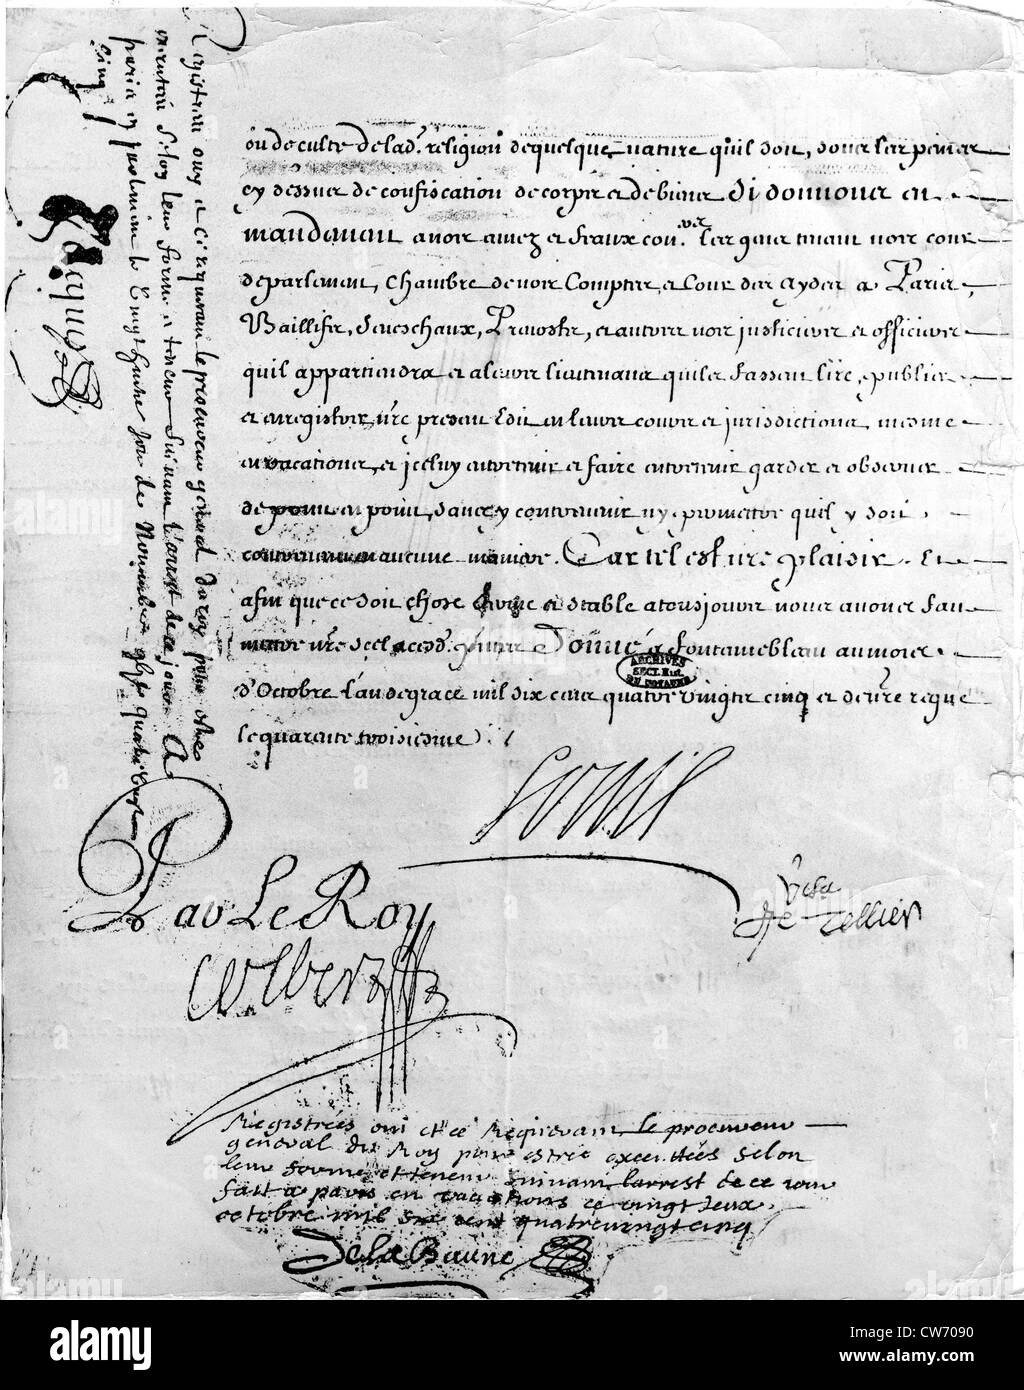 ou de culte de lad. religion de quelque nature quil soit, sous les peines
cy dessus de confiscation de corps et de biens Si donnons en
mandement a nos amez et feaux con.ers les gens tenans nos cour
de parlement, Chambre de nos Comptes, et Cour des Aydes a Paris,
Baillifs, Seneschaux, Prevosts, et autres nos justiciers et officiers
quil appartiendra et a leurs lieutenans quils fassent lire, publier
et enregistrer, nre present Edit en leurs cours et jurisdictions mesme
en vacations, et iceluy entretenir et faire entretenir garder et observer
de point en point, sans y contrevenir ny permettre quil y soit
contrevenu en aucune maniere. Car tel est nre plaisir. Et
afin que ce soit chose ferme et stable a tousjours nous avons fait
mettre nre scel a cesd. Donné a Fontainebleau au mois
d'Octobre l'an de grace mil six cens quatre vingts cinq et de nre regne
le quarante troisiesme
ARCHIVES
SECT.
DU ROYAUME
Louis
Visa
Le Tellier
Par Le Roy
Colbert
Registrées ouy et ce Requerant le procureur
general du Roy pour estre executées selon
leur forme et teneur suivant larrest de ce jour
fait a paris en vacations ce vingt deux
octobre mil six cent quatrevingtcinq
De la Baune
Registrées ouy et ce requerant le procureur general du roy pour estre
executées selon leur forme et teneur suivant l'arrest de ce jour A
paris en parlement le
cinq
Jacques
alamy
Image ID: CW7090
www.alamy.com